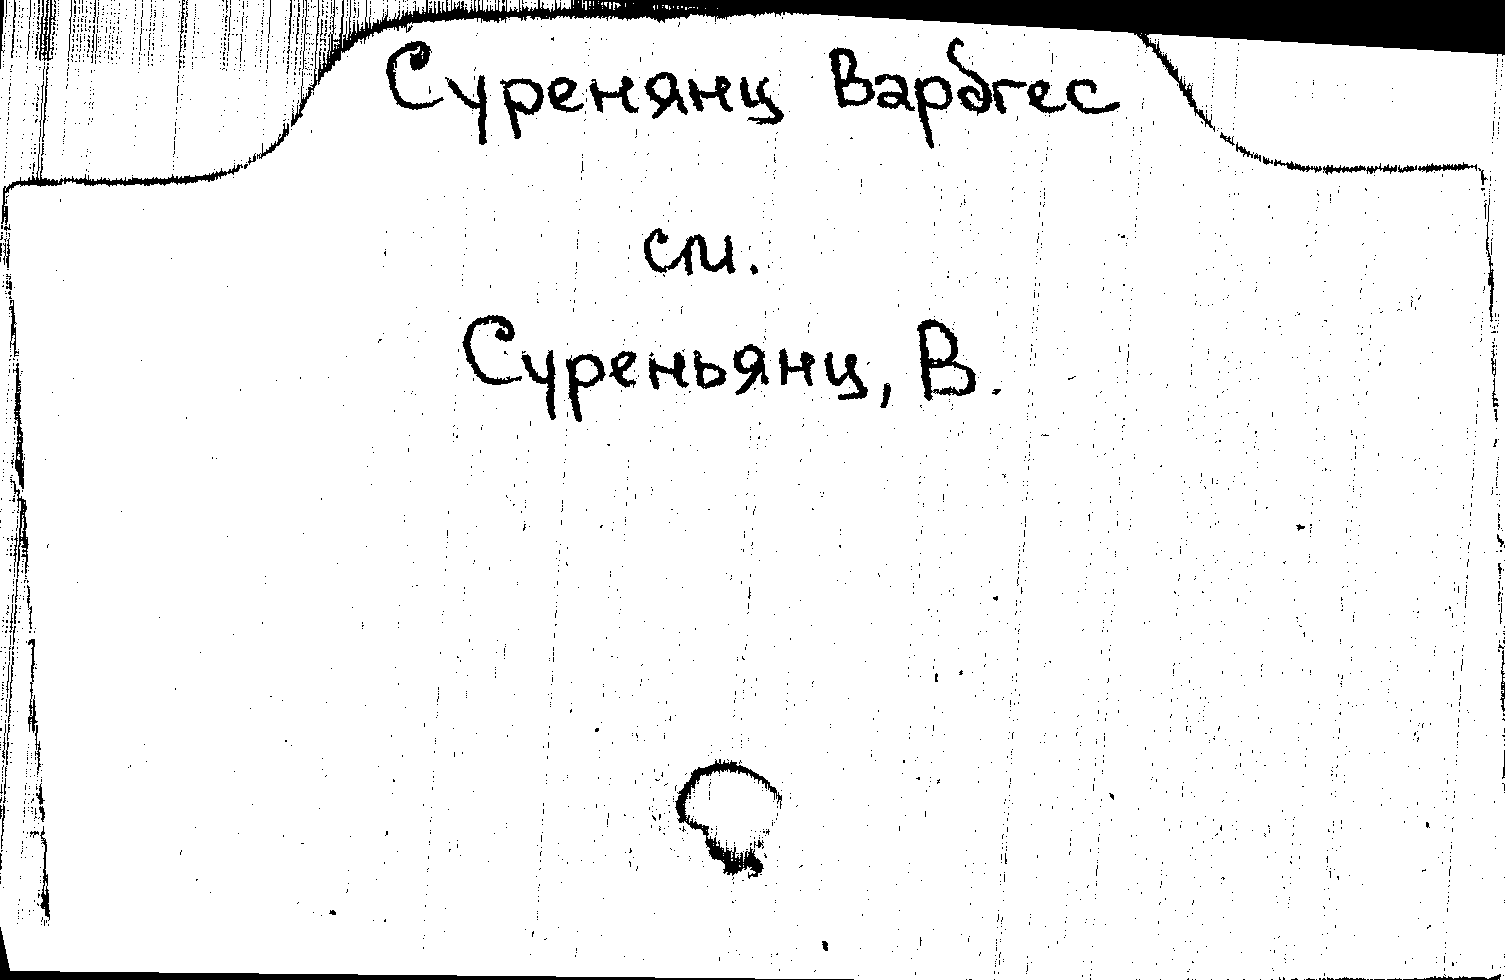 Суренянц Вардгес
см.
Суреньянц, В.